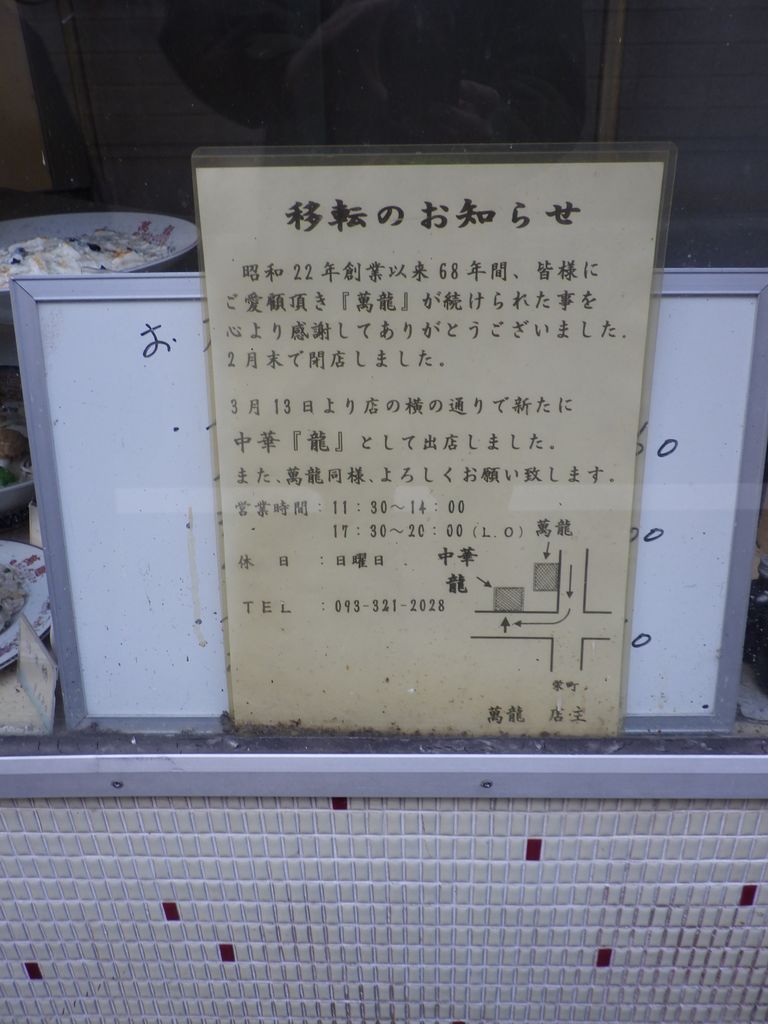 移転のお知らせ
昭和22年創業以来68年間、皆様に
ご愛顧頂き『萬龍』が続けられた事を
心より感謝してありがとうございました.
2月末で閉店しました。
3月13日より店の横の通りで新たに
中華『龍』として出店しました。
また、萬龍同様、よろしくお願い致します。
営業時間：11：30～14：00
17：30～20：00（L.O）
休　日　：日曜日
TEL　：093-321-2028
萬龍
中華
龍
栄町
萬龍　店主
お